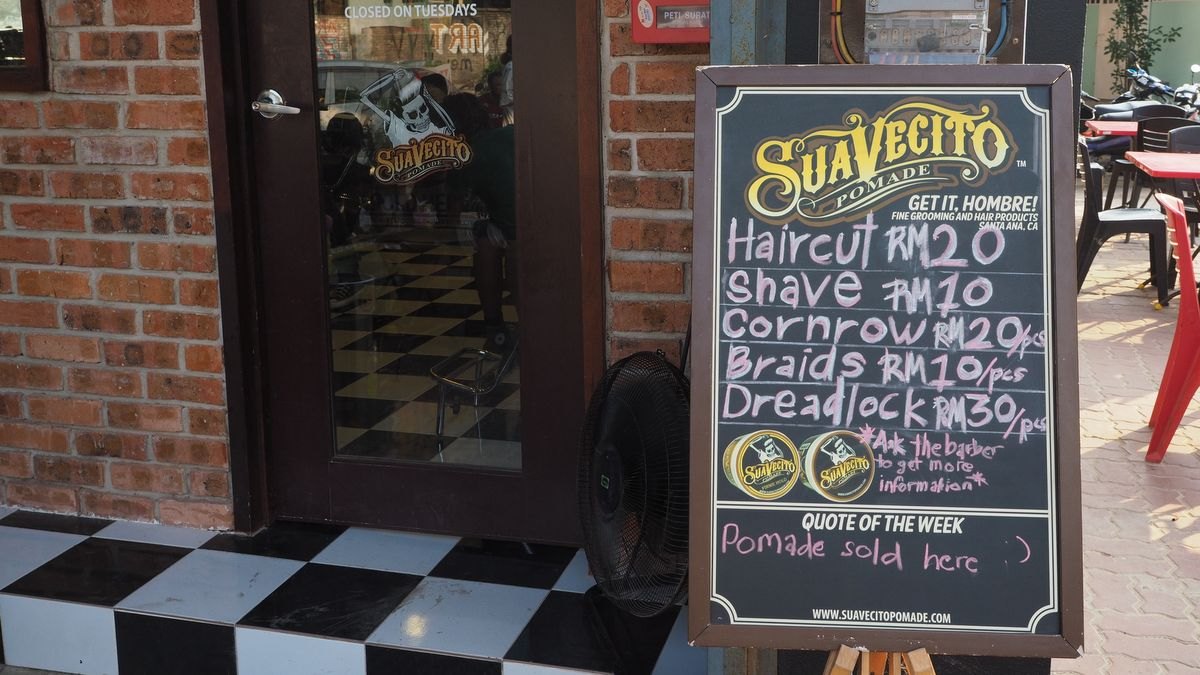 CLOSED ON TUESDAYS
ART
SUAVECITO
POMADE
PETI SURAT
SUAVECITO
POMADE
TM
GET IT, HOMBRE!
FINE GROOMING AND HAIR PRODUCTS
SANTA ANA, CA
Haircut RM20
Shave RM10
Cornrow RM20/pcs
Braids RM10/pcs
Dreadlock RM30/pcs
SUAVECITO
POMADE
SUAVECITO
POMADE
*Ask the barber
to get more
information*
QUOTE OF THE WEEK
Pomade sold here :)
WWW.SUAVECITOPOMADE.COM